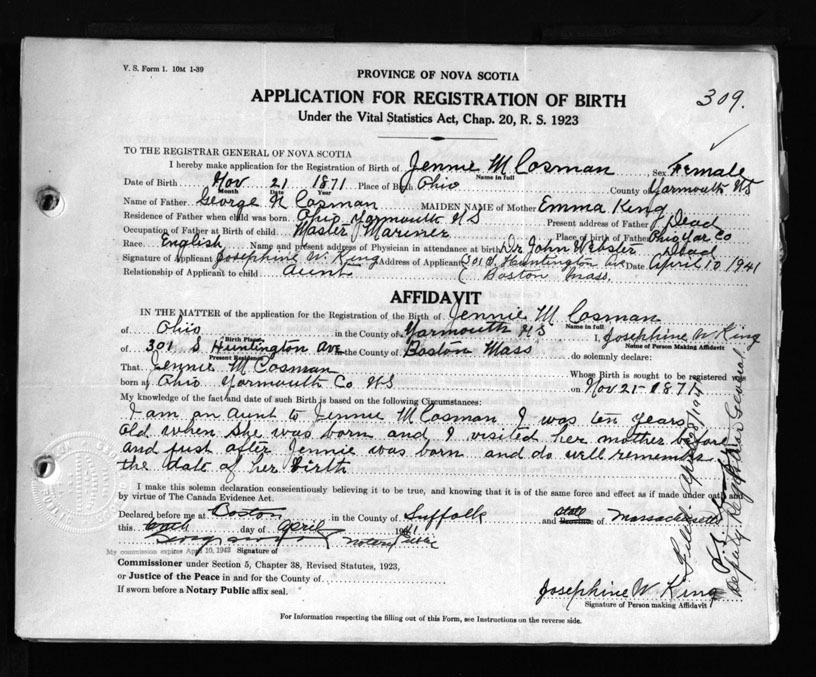 V. S. Form 1. 10M 1-39
PROVINCE OF NOVA SCOTIA
309.
APPLICATION FOR REGISTRATION OF BIRTH
Under the Vital Statistics Act, Chap. 20, R. S. 1923
TO THE REGISTRAR GENERAL OF NOVA SCOTIA
I hereby make application for the Registration of Birth of Jennie M Cosman Sex Female
Name in full
Date of Birth Nov 21 1871 Place of Birth Ohio County of Yarmouth NS
Month Date Year
Name of Father George N Cosman MAIDEN NAME of Mother Emma King
Residence of Father when child was born Ohio Yarmouth NS Present address of Father Dead
Occupation of Father at Birth of child Master Mariner Place of birth of Father Ohio Yar Co
Race English Name and present address of Physician in attendance at birth Dr John Webster Dead
Signature of Applicant Josephine W. King Address of Applicant 301 S. Huntington Av Date April 10 1941
Relationship of Applicant to child aunt Boston Mass.
AFFIDAVIT
IN THE MATTER of the application for the Registration of the Birth of Jennie M Cosman
Name in full
of Ohio in the County of Yarmouth NS I, Josephine W King
Birth Place Name of Person Making Affidavit
of 301 S Huntington Ave in the County of Boston Mass do solemnly declare:
Present Residence
That Jennie M Cosman Whose Birth is sought to be registered was
born at Ohio Yarmouth Co NS on Nov 21 - 1871
My knowledge of the fact and date of such Birth is based on the following Circumstances:
I am an aunt to Jennie M Cosman I was ten years
old when she was born and I visited her mother before
and just after Jennie was born and do well remember
the date of her birth
I make this solemn declaration conscientiously believing it to be true, and knowing that it is of the same force and effect as if made under oath and
by virtue of The Canada Evidence Act.
Declared before me at Boston in the County of Suffolk and state Province of Massachusetts
this day of April 1941
Notary Public
My commission expires April 10, 1943 Signature of
Commissioner under Section 5, Chapter 38, Revised Statutes, 1923,
or Justice of the Peace in and for the County of
If sworn before a Notary Public affix seal.
Josephine W King
Signature of Person making Affidavit
For Information respecting the filling out of this Form, see Instructions on the reverse side.
Deputy Registrar General